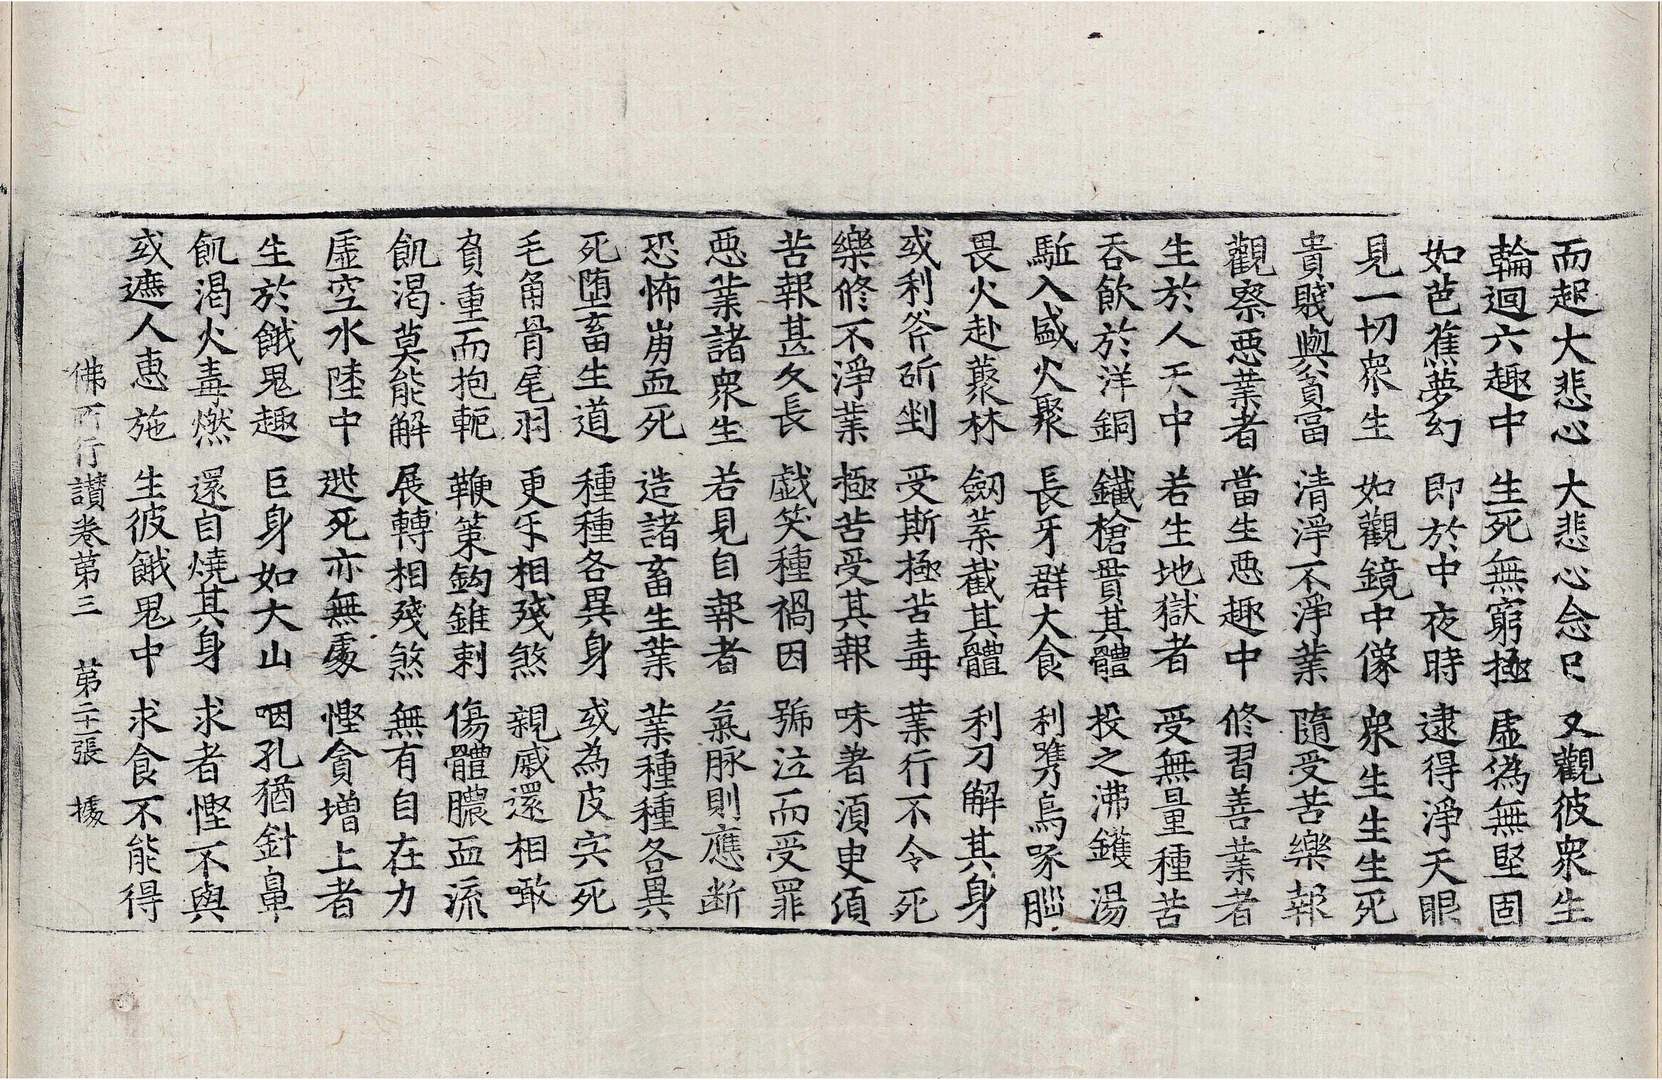 而起大悲心 大悲心念已 又觀彼衆生
輪迴六趣中 生死無窮極 虛僞無堅固
如芭蕉夢幻 即於中夜時 逮得淨天眼
見一切衆生 如觀鏡中像 衆生生生死
貴賤與貧富 清淨不淨業 隨受苦樂報
觀察惡業者 當生惡趣中 修習善業者
生於人天中 若生地獄者 受無量種苦
吞飲於洋銅 鐵槍貫其體 投之沸鑊湯
駈入盛火聚 長牙群犬食 利嘴鳥啄腦
畏火赴叢林 劒葉截其體 利刀解其身
或利斧斫剉 受斯極苦毒 業行不令死
樂修不淨業 極苦受其報 味著須臾頃
苦報甚久長 戯笑種禍因 號泣而受罪
惡業諸衆生 若見自報者 氣脉則應断
恐怖崩血死 造諸畜生業 業種種各異
死墮畜生道 種種各異身 或為皮宍死
毛角骨尾羽 更互相殘煞 親戚還相噉
負重而抱軛 鞭策鈎錐刺 傷體膿血流
飢渴莫能解 展轉相殘煞 無有自在力
虛空水陸中 逃死亦無處 慳貪增上者
生於餓鬼趣 巨身如大山 咽孔猶針鼻
飢渴火毒燃 還自燒其身 求者慳不與
或遮人惠施 生彼餓鬼中 求食不能得
佛所行讃卷第三 第二十二張 據